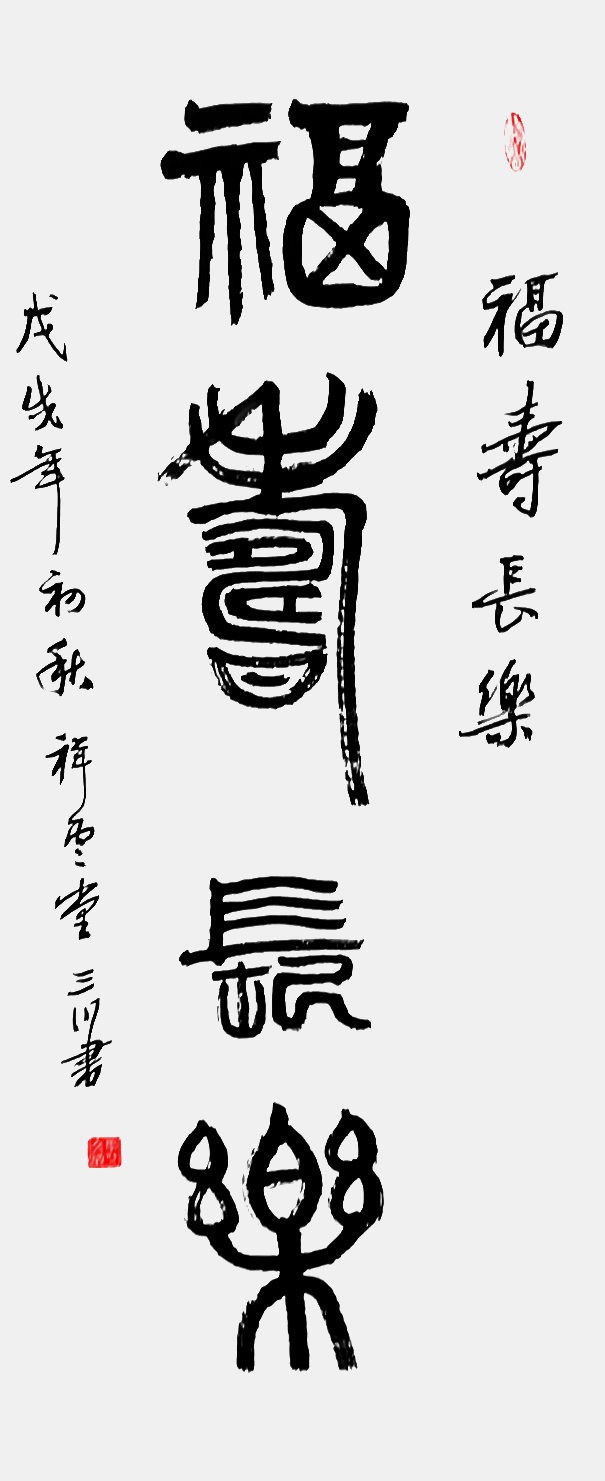 福壽長樂
福壽長樂
戊戌年初秋祥雲堂三川書